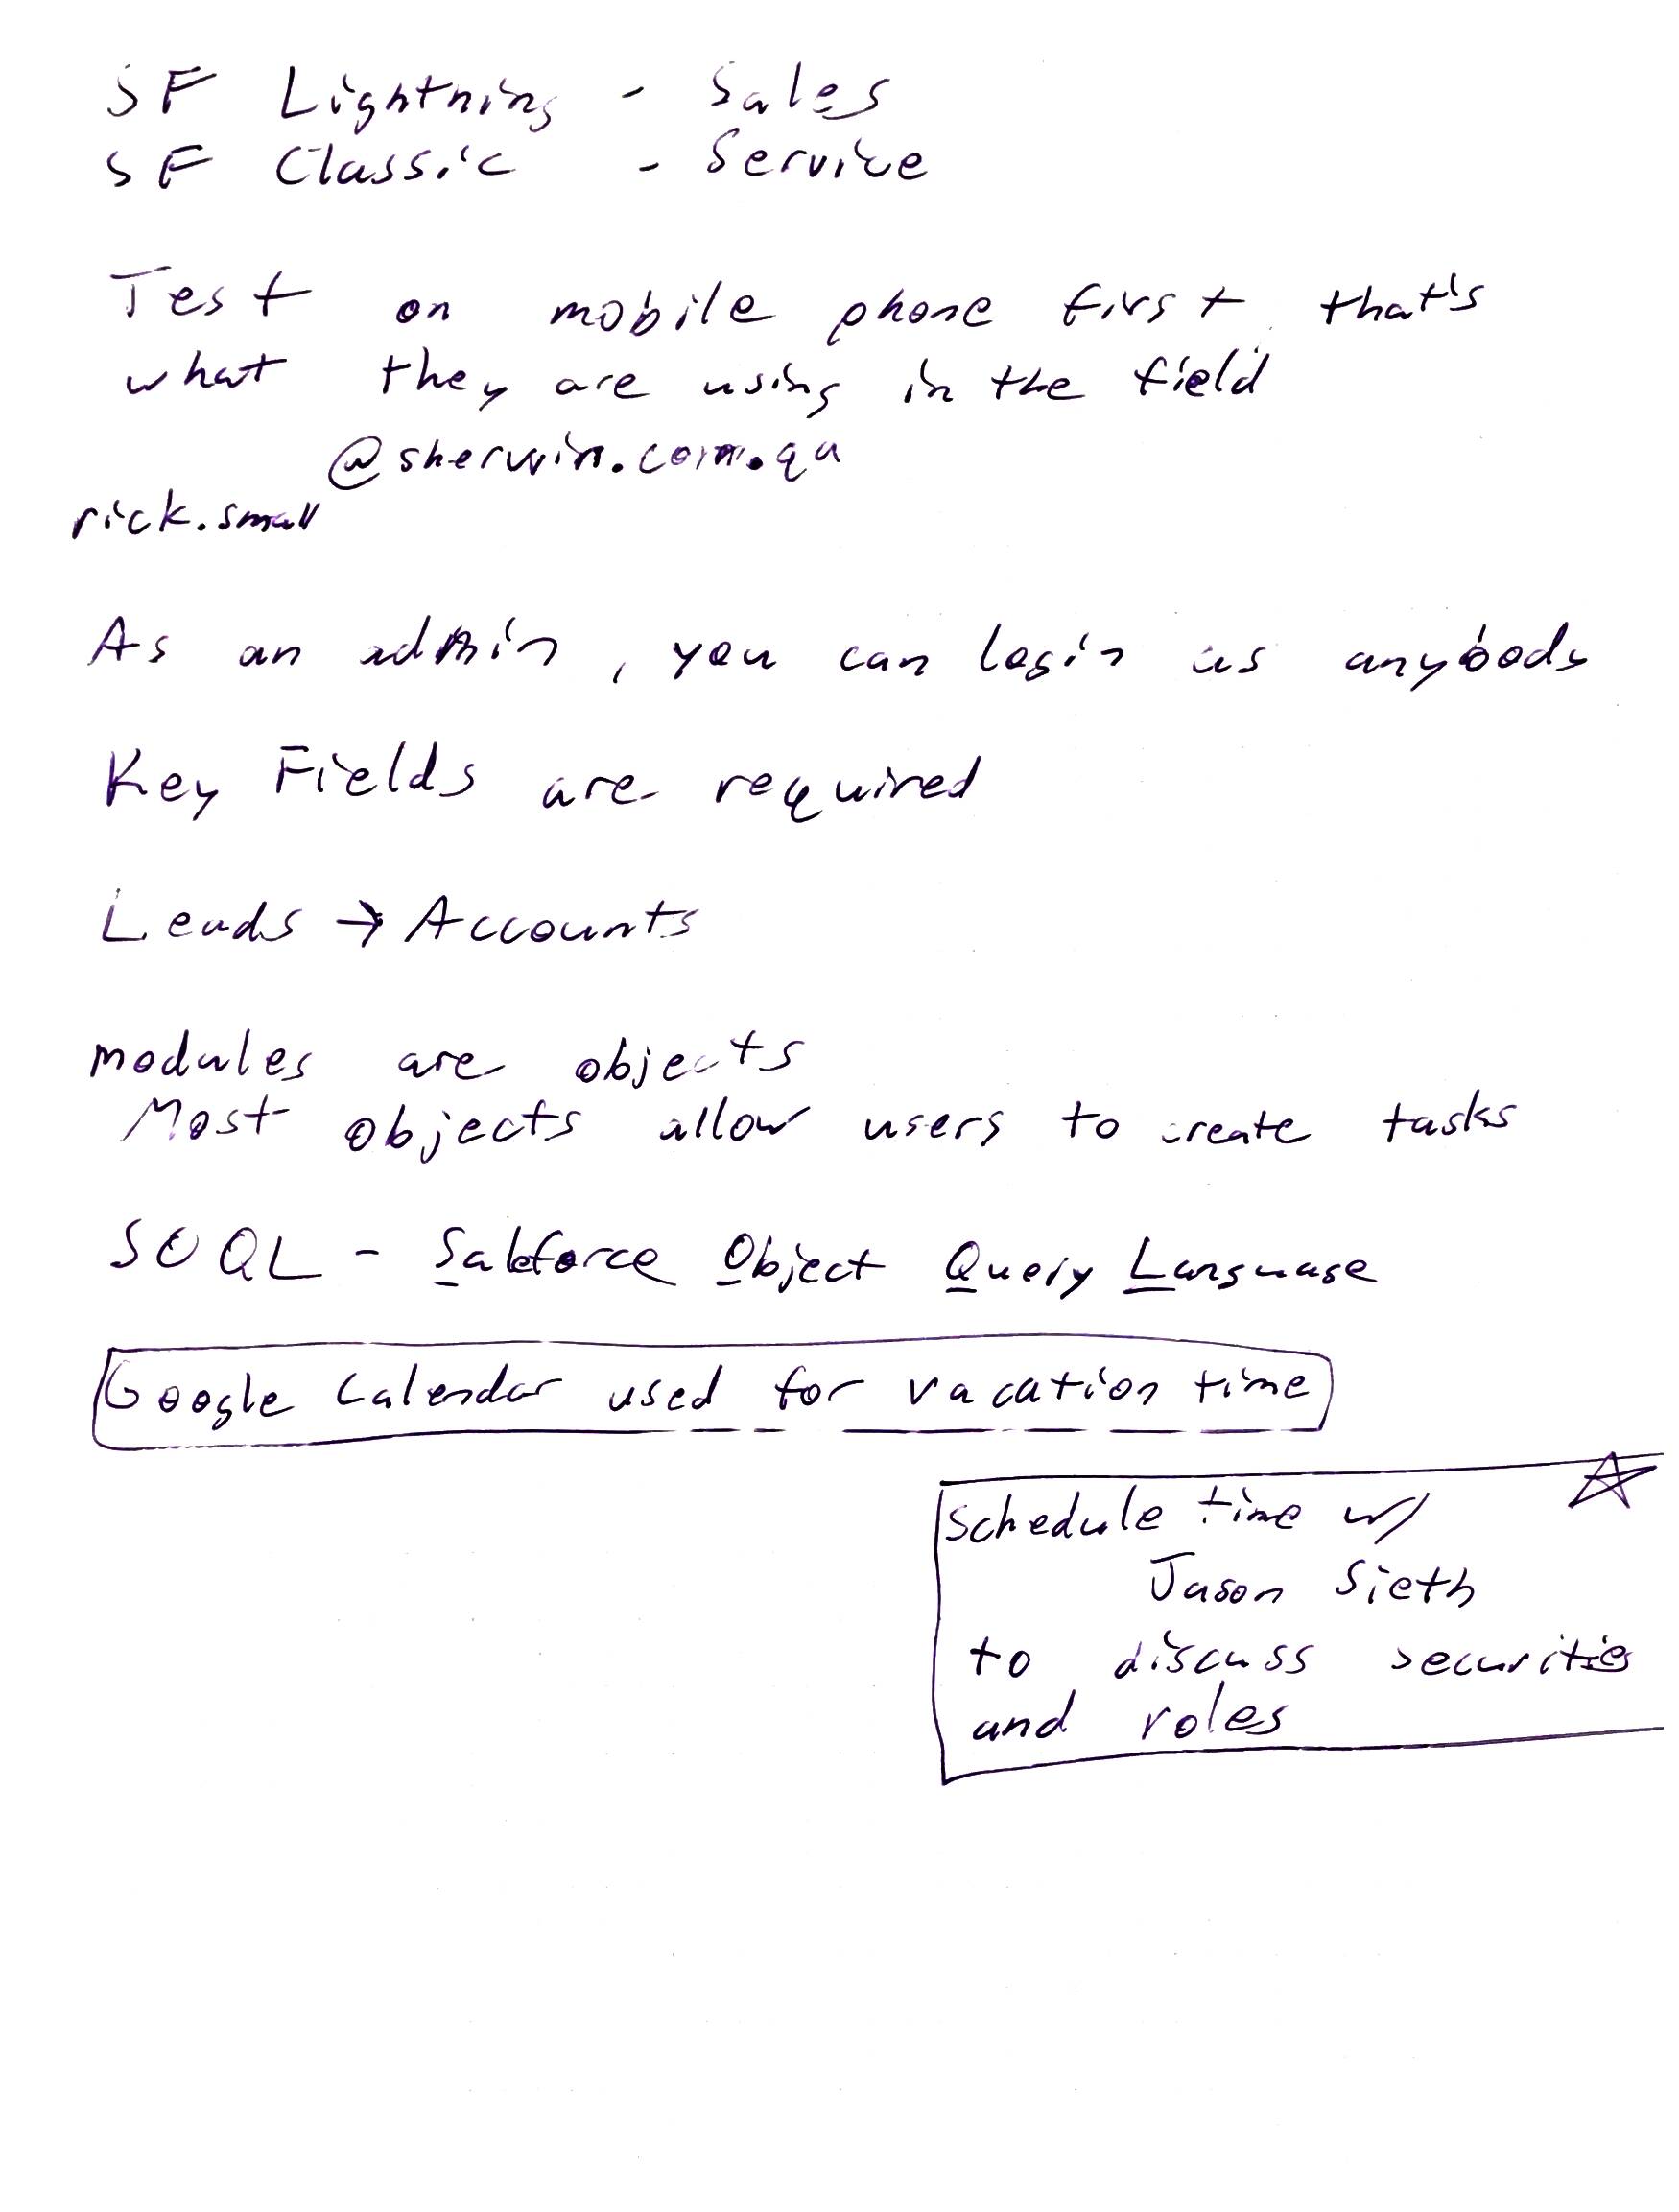 SF Lightning - Sales
SF Classic - Service
Test on mobile phone first that's
what they are using in the field
@sherwin.com.qa
rick.small
As an admin, you can login as anybody
Key Fields are required
Leads → Accounts
modules are objects
Most objects allow users to create tasks
SOQL - Saleforce Object Query Language
Google Calendar used for vacation time
schedule time w/
Jason Sieth
to discuss securities
and roles